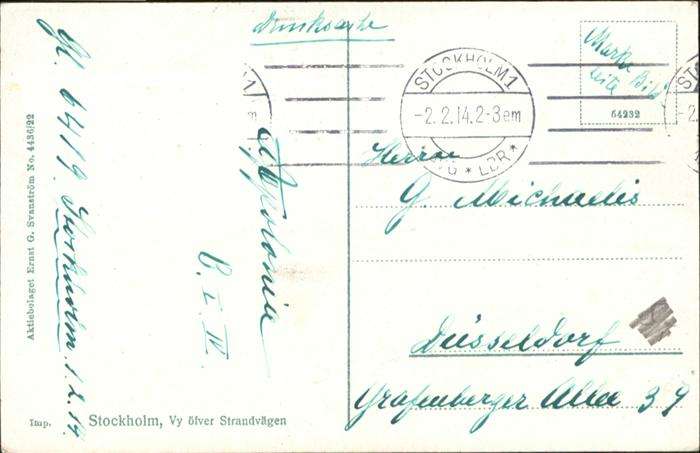 Drucksache
Marke Bild
seite
64232
STOCKHOLM 1
-2.2.14.2-3em
* LBR *
Herrn
G. Michaelis
Düsseldorf
Grafenberger Allee 39
Apolonia
C. i. IV.
64719 Stockholm 1.2.14.
Aktiebolaget Ernst G. Svanström No. 4436/22
Imp.
Stockholm, Vy öfver Strandvägen